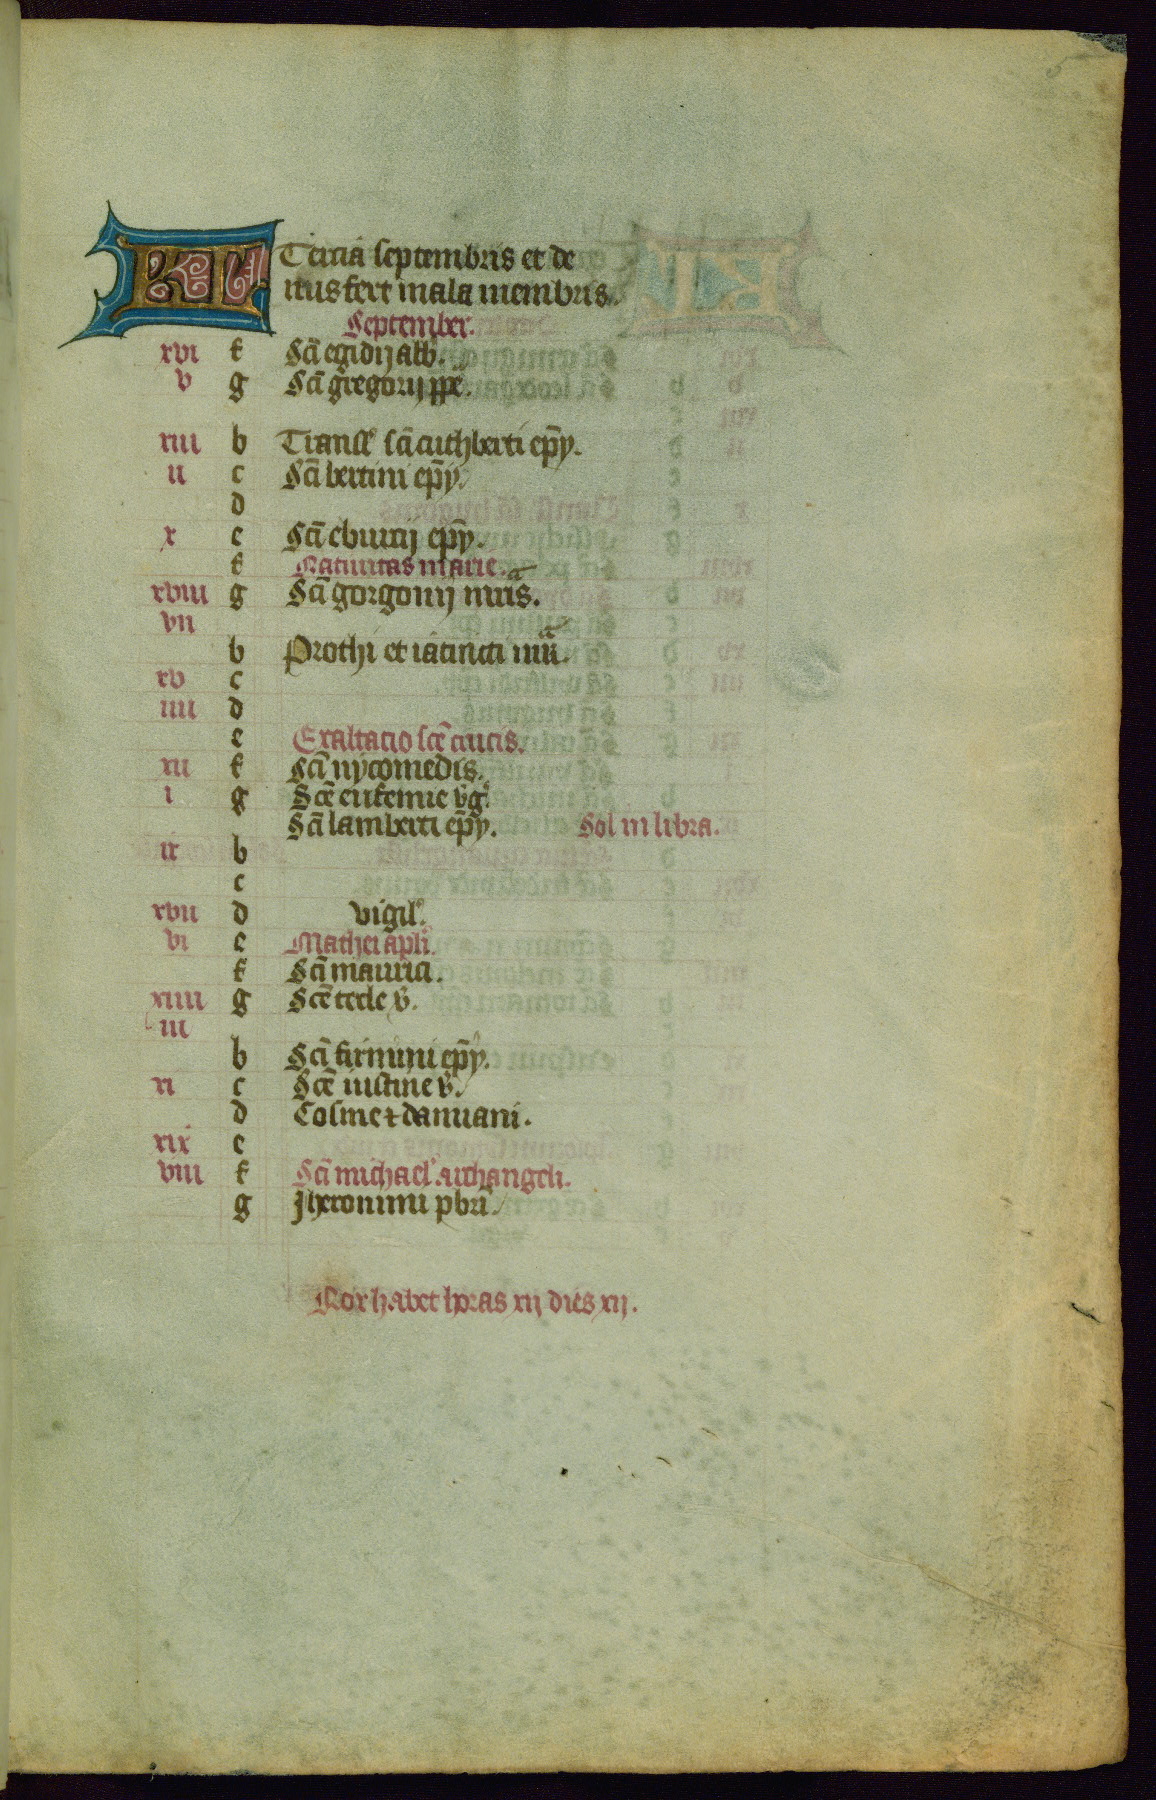 KL Tercia septembris et de
nus fert mala membris.
September.
xvi f Sci egidij abb.
v g Sci gregorij pp̄e.
xiii b Transl' sci cuthberti ep̄y.
ii c Sci bertini ep̄y.
d
x e Sci ebuicij ep̄y.
f Natiuitas marie.
xviii g Sci gorgonij mris.
vii
b Prothi et iacincti mr̄.
xv c
iiii d
e Exaltacio sc̄e crucis.
xii f Sci nycomedis.
i g Sc̄e eufemie v̄g.
Sci lamberti ep̄y. Sol in libra.
ix b
c
xvii d vigil'.
vi e Mathei apl̄i.
f Sci mauricii.
xiiii g Sc̄e tecle v̄.
iii
b Sci firmini ep̄y.
xi c Sc̄e iustine v̄.
d Cosme ⁊ damiani.
xix e
viii f Sci michael' archangeli.
g Jheronimi pbr̄i.
Nox habet horas xij dies xij.